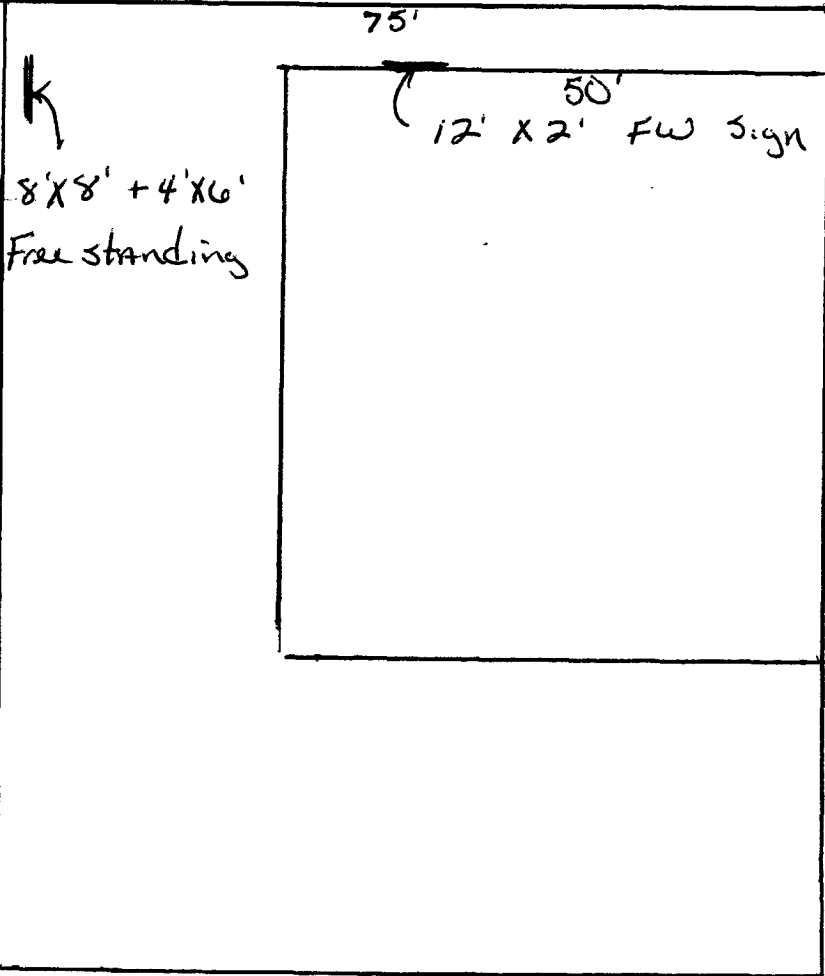 75'
50'
12' X 2' FW Sign
8'X8' + 4'X6'
Free standing